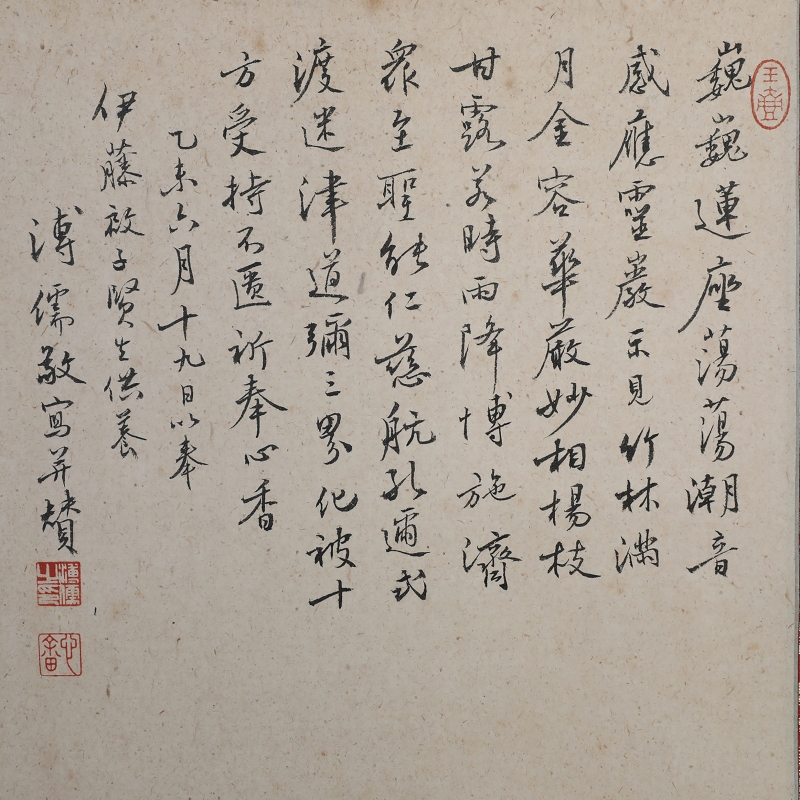 玉壺
巍巍蓮座蕩蕩潮音
感應靈巖示見竹林滿
月金容華嚴妙相楊枝
甘露若時雨降博施濟
眾至聖能仁慈航孔邇式
渡迷津道彌三界化被十
方受持不匱祈奉心香
乙未六月十九日以奉
伊藤啟子賢生供養
溥儒敬寫并贊
溥儒之印
心畬